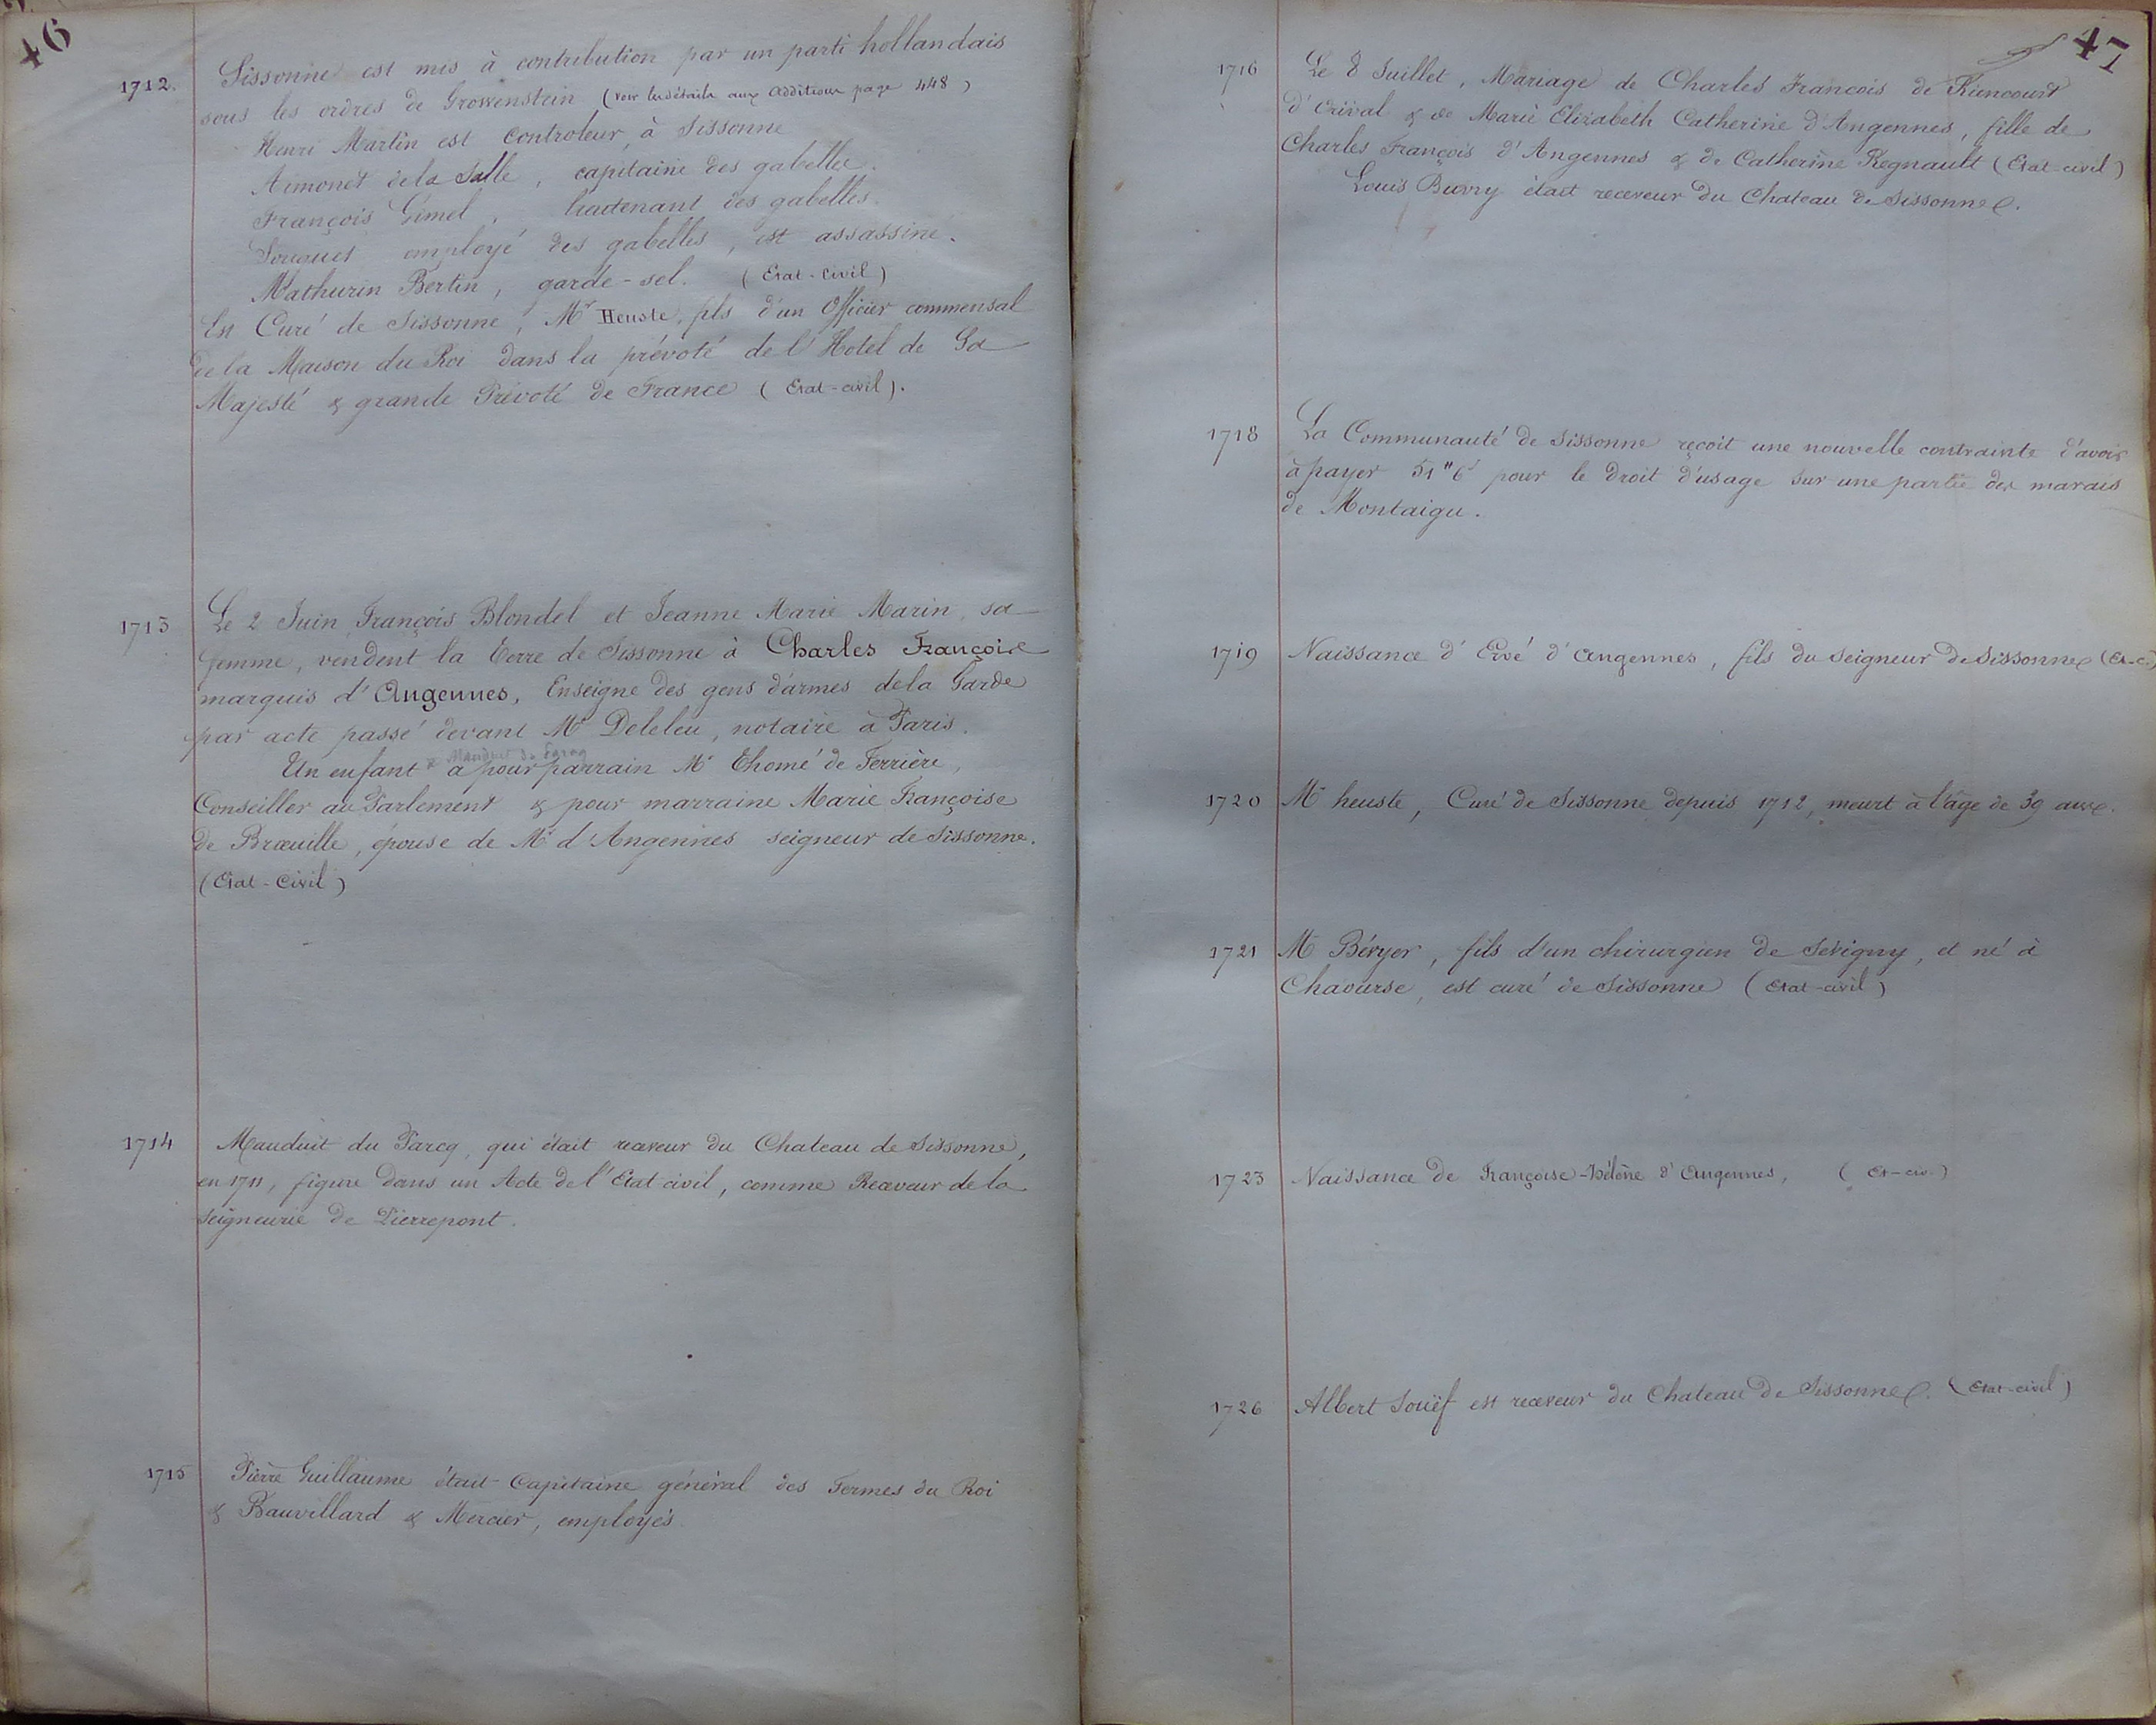 46
1712. Sissonne est mis à contribution par un parti hollandais
sous les ordres de Growenstein (voir les détails aux additions page 448)
Henri Martin est controleur à Sissonne
Aimonet de la Salle, capitaine des gabelles.
François Gimel, lieutenant des gabelles.
Souquet employé des gabelles, est assassiné.
Mathurin Bertin, garde-sel. (Etat-civil)
Est Curé de Sissonne, Mr Heuste, fils d'un Officier commensal
de la Maison du Roi dans la prévoté de l'Hotel de Sa
Majesté & grande Prévoté de France (Etat-civil).
1713 Le 2 Juin François Blondel et Jeanne Marie Marin, sa
femme, vendent la Terre de Sissonne à Charles François
marquis d'Angennes, Enseigne des gens d'armes de la Garde
par acte passé devant Me Deleleu, notaire à Paris.
x Manduit du Parcq
Un enfant x a pour parrain Mr Thomé de Ferrière,
Conseiller au Parlement & pour marraine Marie Françoise
de Brœuille, épouse de Mr d'Angennes seigneur de Sissonne.
(Etat-Civil)
1714 Mauduit du Parcq, qui était receveur du Chateau de Sissonne,
en 1711, figure dans un Acte de l'Etat civil, comme Receveur de la
seigneurie de Pierrepont.
1715 Pierre Guillaume était Capitaine général des Fermes du Roi
& Bauvillard & Mercier, employés.
47
1716 Le 8 Juillet, Mariage de Charles François de Riencourt
d'Orival & de Marie Elizabeth Catherine d'Angennes, fille de
Charles François d'Angennes & de Catherine Regnault (Etat-civil)
Louis Buvry était receveur du Chateau de Sissonne.
1718 La Communauté de Sissonne reçoit une nouvelle contrainte d'avoir
à payer 51" 6s pour le droit d'usage sur une partie des marais
de Montaigu.
1719 Naissance d'Ervé d'Angennes, fils du Seigneur de Sissonne (Et-c.)
1720 Mr heuste, Curé de Sissonne depuis 1712, meurt à l'âge de 39 ans.
1721 M Béryer, fils d'un chirurgien de Sévigny, et né à
Chaourse, est curé de Sissonne (Etat-civil)
1723 Naissance de Françoise-Hélène d'Angennes, (Et-civ.)
1726 Albert Souëf est receveur du Chateau de Sissonne. (Etat-civil)